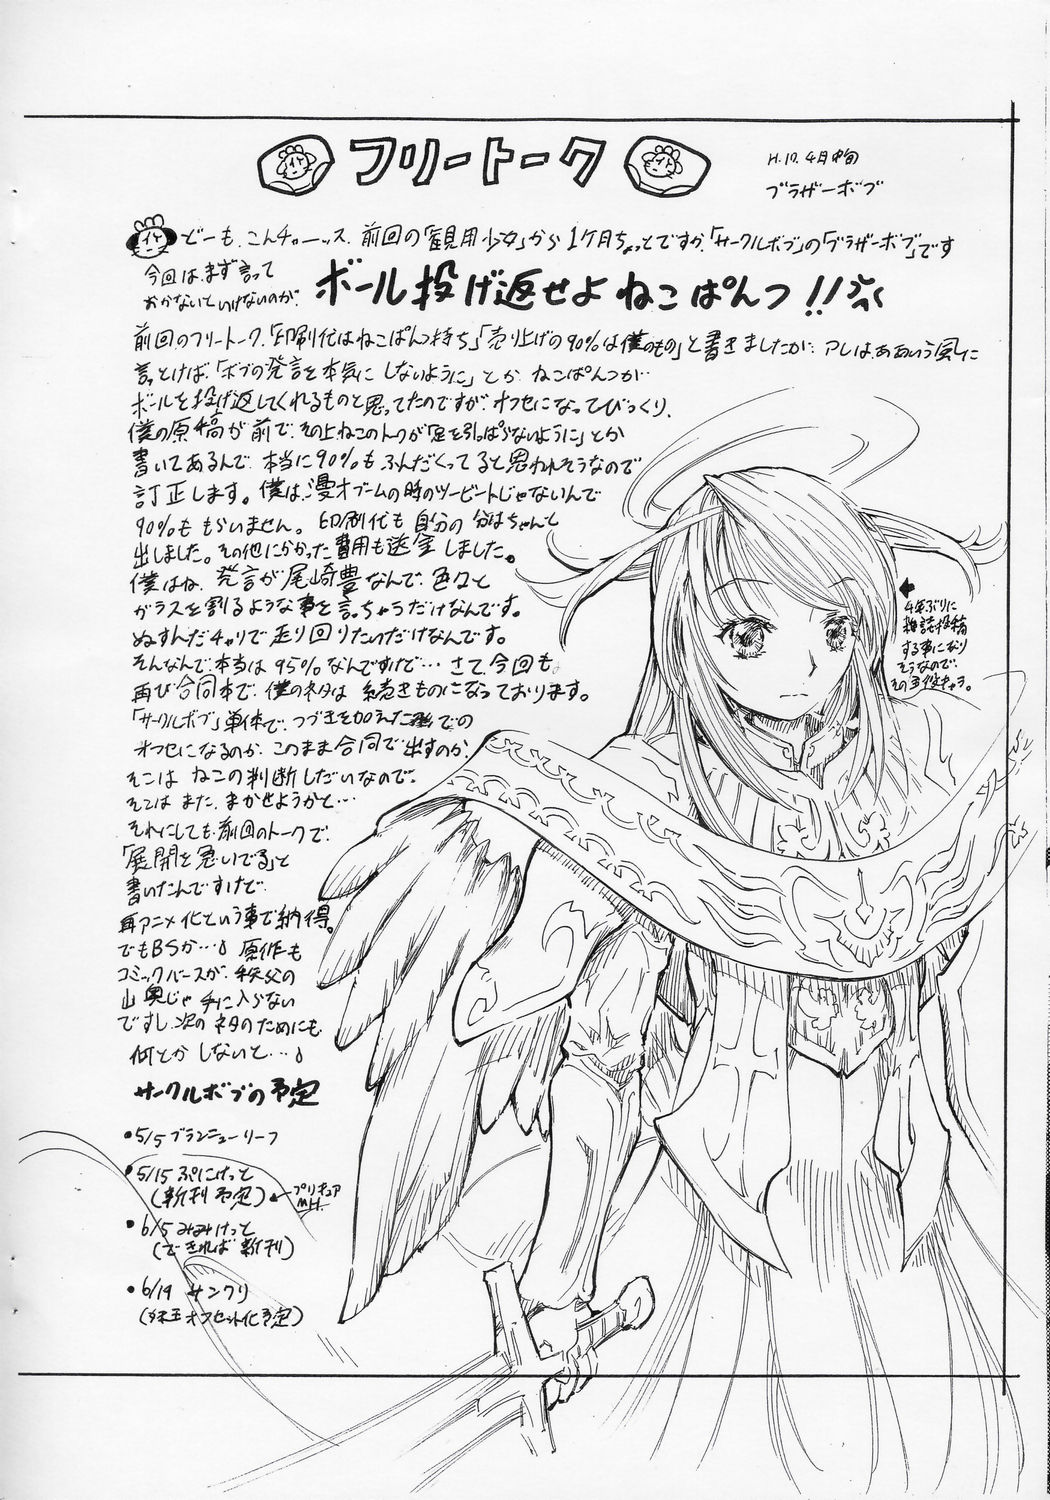 フリートーク
H.17.4月中旬
ブラザーボブ
どーも、こんチャーッス、前回の「観用少女」から1ヶ月ちょっとですが、「サークルボブ」の「ブラザーボブ」です
今回は、まず言って
おかないといけないのが、
ボール投げ返せよ ねこぱんつ!!
前回のフリートーク、「印刷代はねこぱんつ持ち」「売り上げの90%は僕のもの」と書きましたが、アレはああいう風に
言っとけば、「ボブの発言を本気にしないように」とか ねこぱんつが…
ボールを投げ返してくれるものと思ってたのですが、オフセになってびっくり、
僕の原稿が前で、その上、ねこのトークが「足を引っぱらないように」とか
書いてあるんで、本当に90%もふんだくってると思われそうなので
訂正します。僕は、漫才ブームの時のツービートじゃないんで
90%ももらいません。印刷代も自分の分はちゃんと
出しました。その他にかかった費用も送金しました。
僕はね、発言が尾崎豊なんで、色々と
ガラスを割るような事を言っちゃうだけなんです。
ぬすんだチャリで走り回りたいだけなんです。
そんなんで、本当は95%なんですけど… さて、今回も、
再び合同本で、僕のネタは 続きものになっております。
「サークルボブ」単体で、つづきを加えた形での
オフセになるのか、このまま合同で出すのか、
そこは ねこの判断しだいなので、
そこは また、まかせようかと…
それにしても、前回のトークで、
「展開を急いでる」と
書いたんですけど、
再アニメ化という事で納得。
でもBSか…。原作も
コミックバーズが、秩父の
山奥じゃ 手に入らない
ですし、次の ネタのためにも
何とか しないと…。
サークルボブの予定
・5/5 ブランニューリーフ
・5/15 ぷにけっと
(新刊予定)←プリキュア
MH.
・6/5 みみけっと
(できれば 新刊)
・6/19 サンクリ
オフセット化予定)
4年ぶりに
雑誌投稿
する事になり
そうなので、
その主役キャラ。